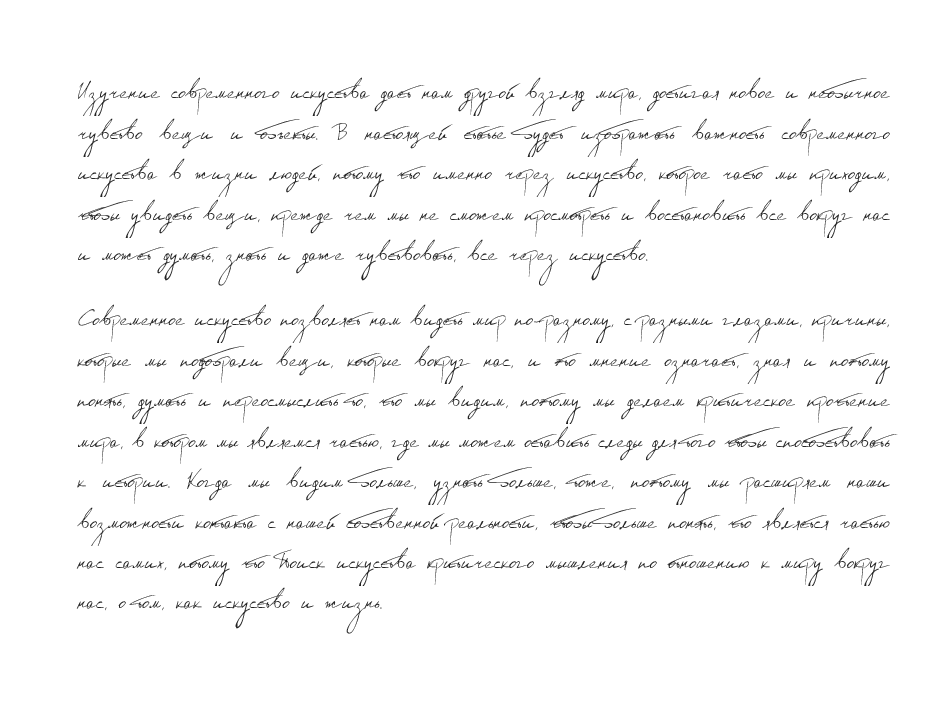 Изучение современного искусства дает нам другой взгляд мира, достигая новое и необычное
чувство вещи и объекты. В настоящей статье будет изображать важность современного
искусства в жизни людей, потому что именно через искусство, которое часто мы приходим,
чтобы увидеть вещи, прежде чем мы не сможем просмотреть и восстановить все вокруг нас
и может думать, знать и даже чувствовать, все через искусство.
Современное искусство позволяет нам видеть мир по-разному, с разными глазами, причины,
которые мы подобрали вещи, которые вокруг нас, и это мнение означает, зная и поэтому
понять, думать и переосмыслить то, что мы видим, поэтому мы делаем критическое прочтение
мира, в котором мы являемся частью, где мы можем оставить следы для того чтобы способствовать
к истории. Когда мы видим больше, узнать больше, тоже, поэтому мы расширяем наши
возможности контакта с нашей собственной реальности, чтобы больше понять, что является частью
нас самих, потому что Поиск искусства критического мышления по отношению к миру вокруг
нас, о том, как искусство и жизнь.